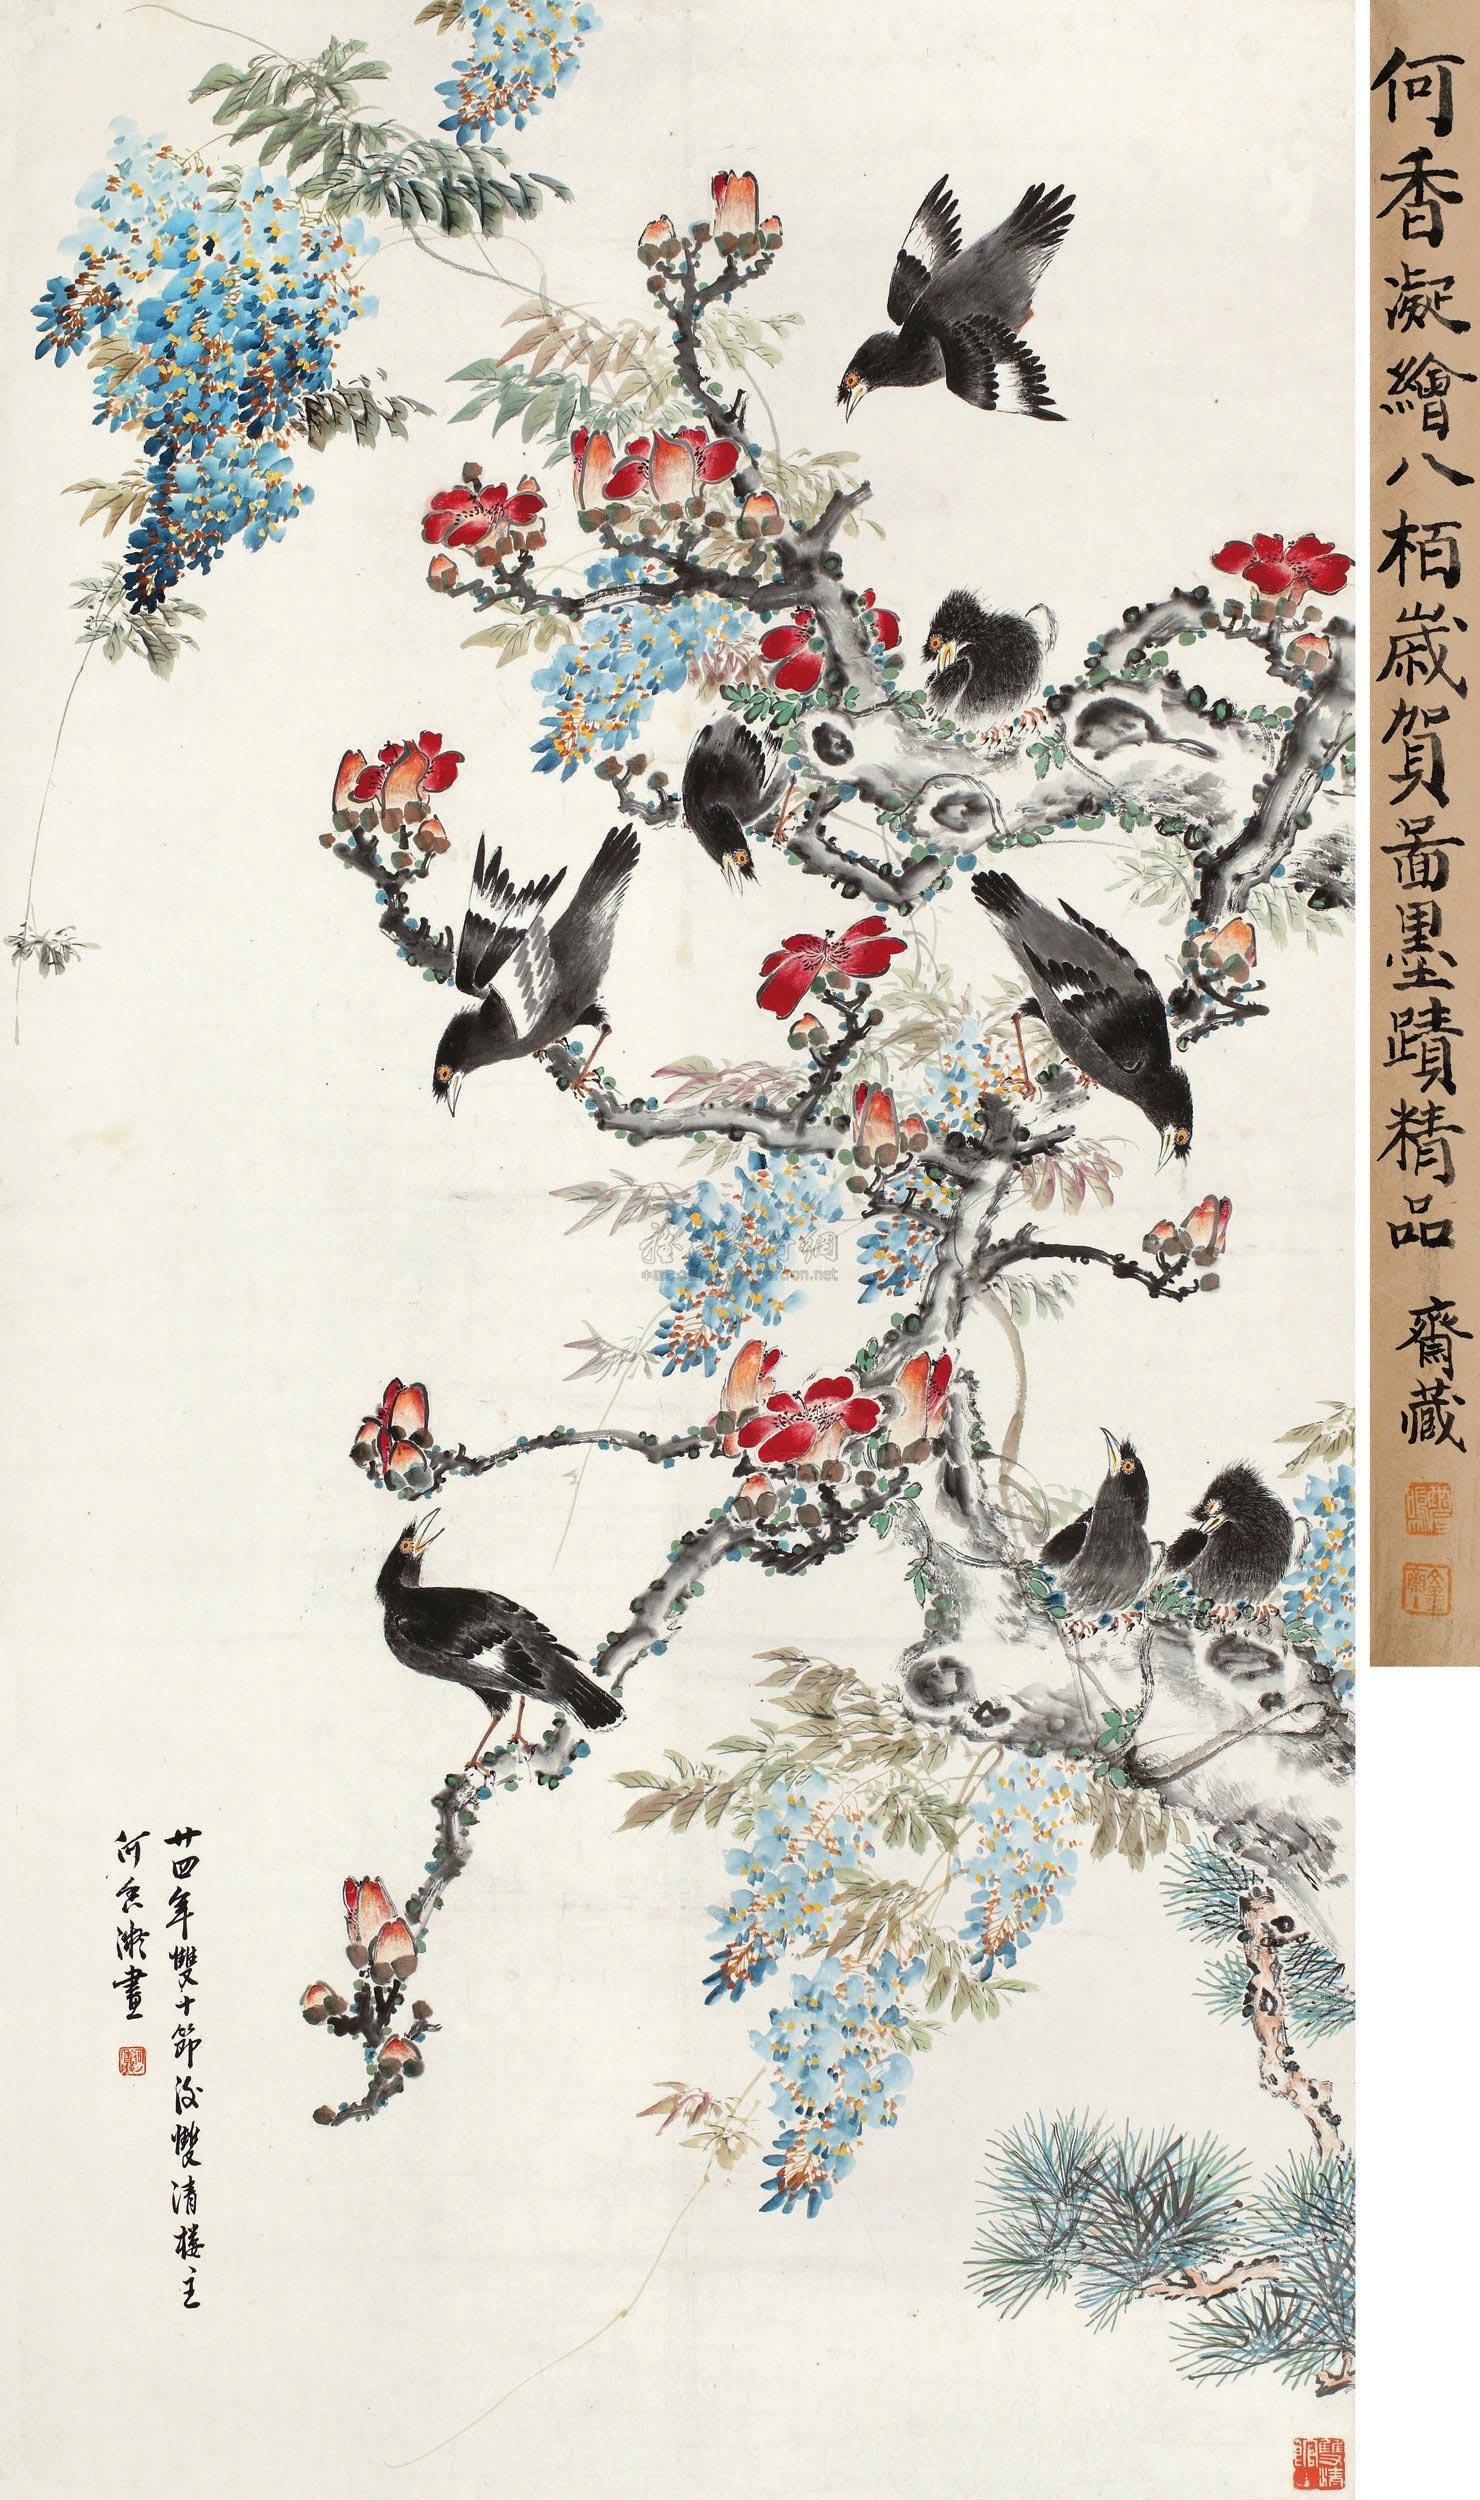 何香凝繪八栢歲賀啚墨蹟精品
齋藏
廿四年雙十節後雙清樓主
何香凝畫